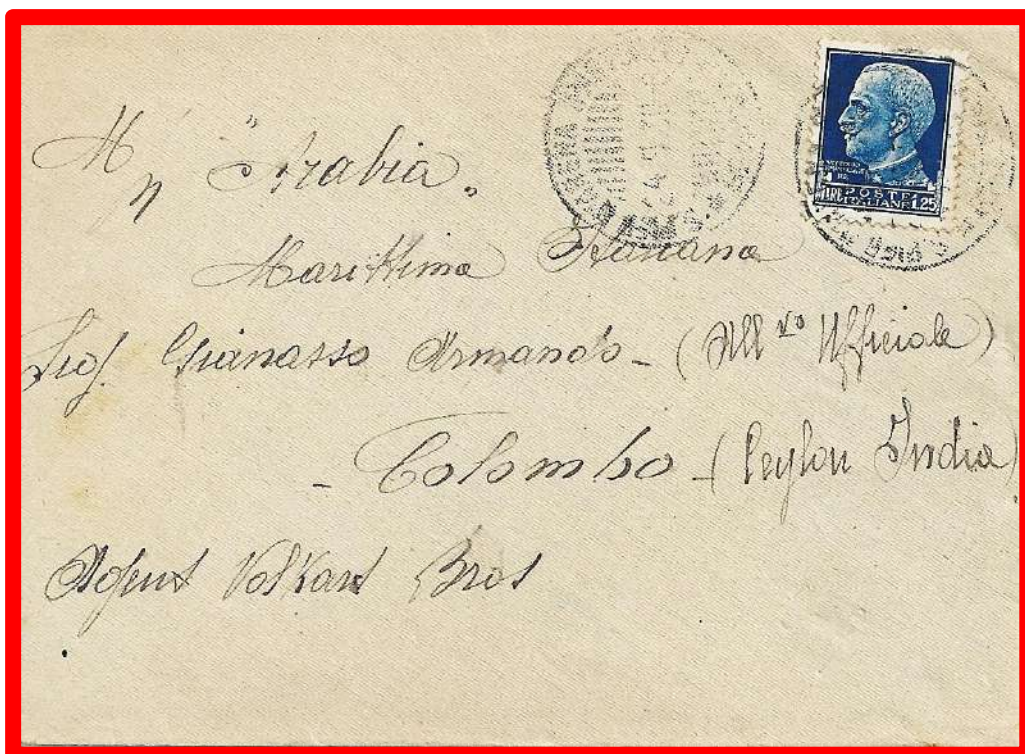 M/n "Arabia"
Marittima Italiana
Sig. Gianasso Armando - (All vo Ufficiale)
- Colombo - (Ceylon India)
Agent Volkart Bros
POSTE
LIRE ITALIANE 1.25